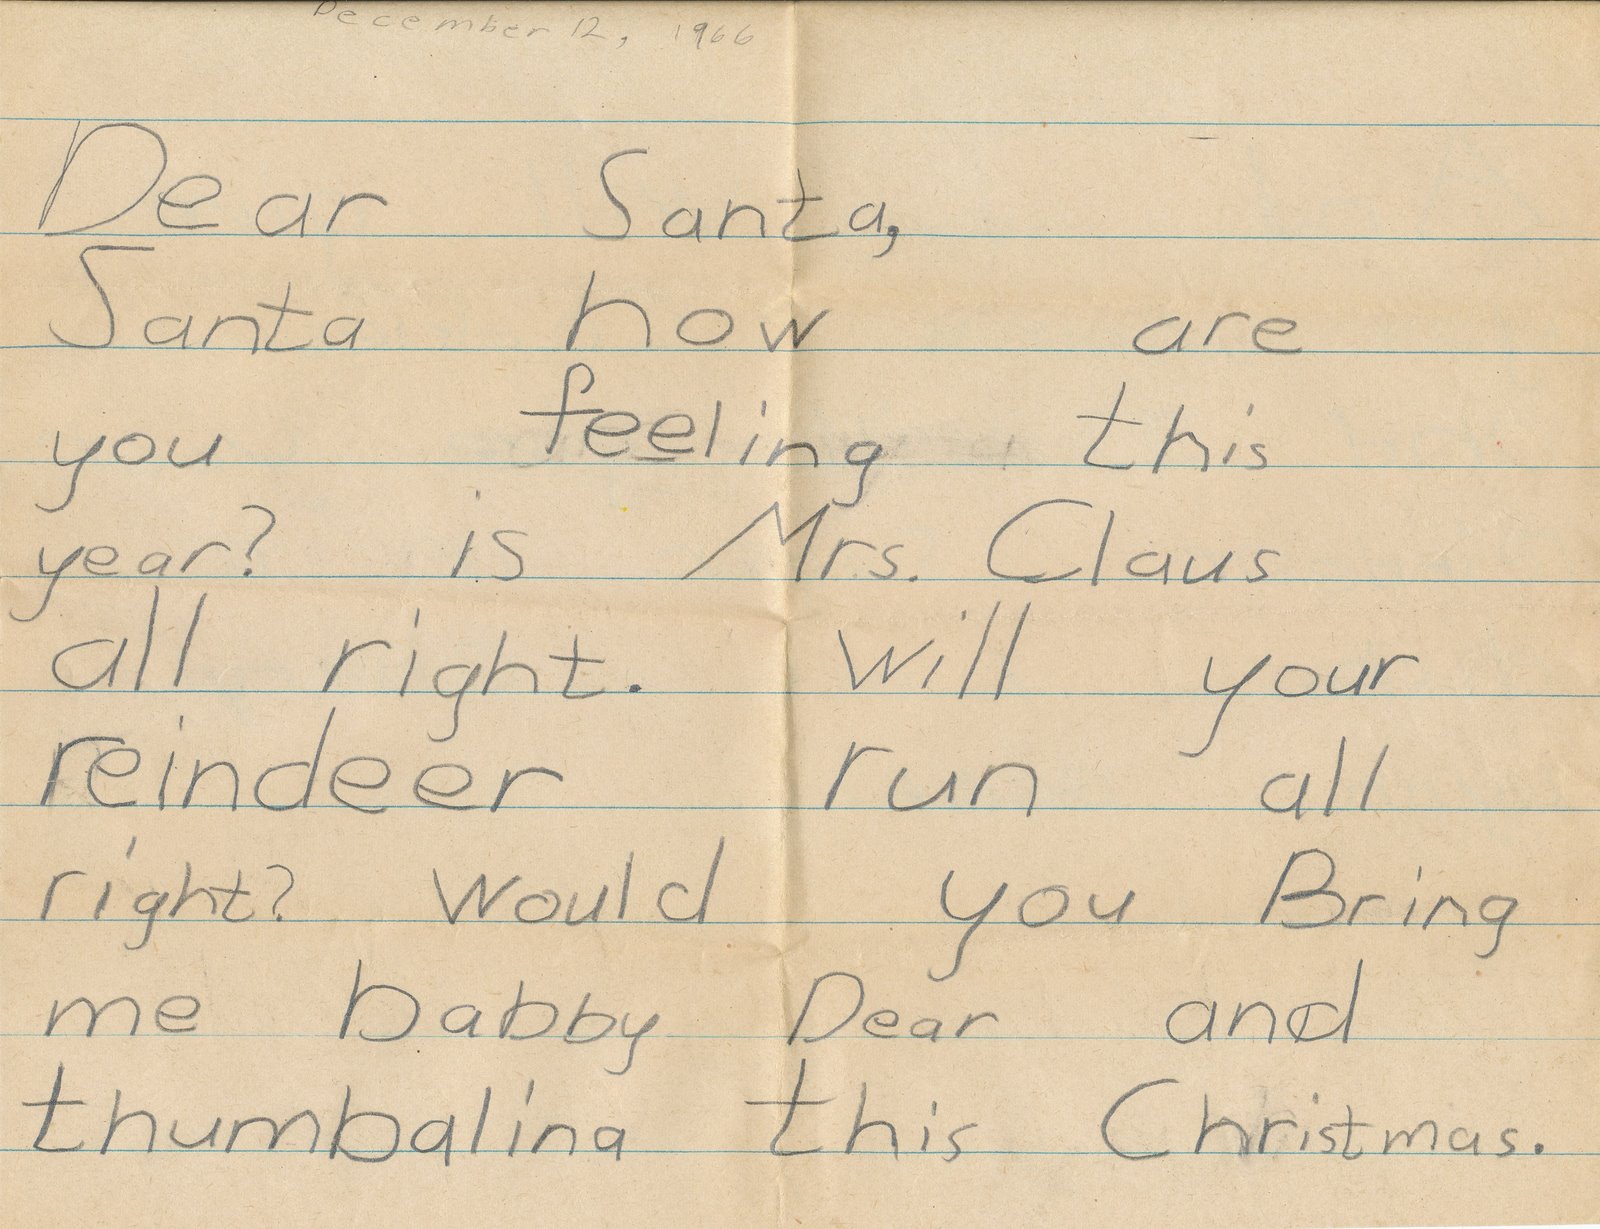 December 12, 1966
Dear Santa,
Santa how are
you feeling this
year? is Mrs. Claus
all right. will your
reindeer run all
right? Would you Bring
me babby Dear and
thumbalina this Christmas.